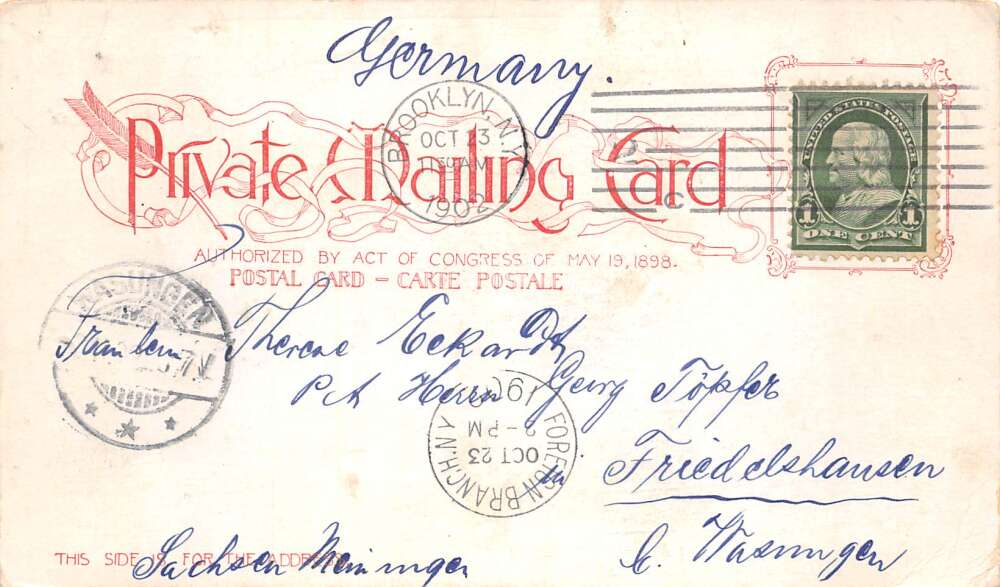 Germany.
BROOKLYN, N.Y.
OCT 23
11 30 AM
1902
Private Mailing Card
UNITED STATES POSTAGE
1 1
ONE CENT
AUTHORIZED BY ACT OF CONGRESS OF MAY 19, 1898.
POSTAL CARD – CARTE POSTALE
WASUNGEN
Fraulein Therese Eckardt
p A Herrn Georg Töpfer
FOREIGN BRANCH. N.Y
OCT 23
2-PM
in Friedelshausen
b. Wasungen
THIS SIDE IS FOR THE ADDRESS.
Sachsen Meiningen